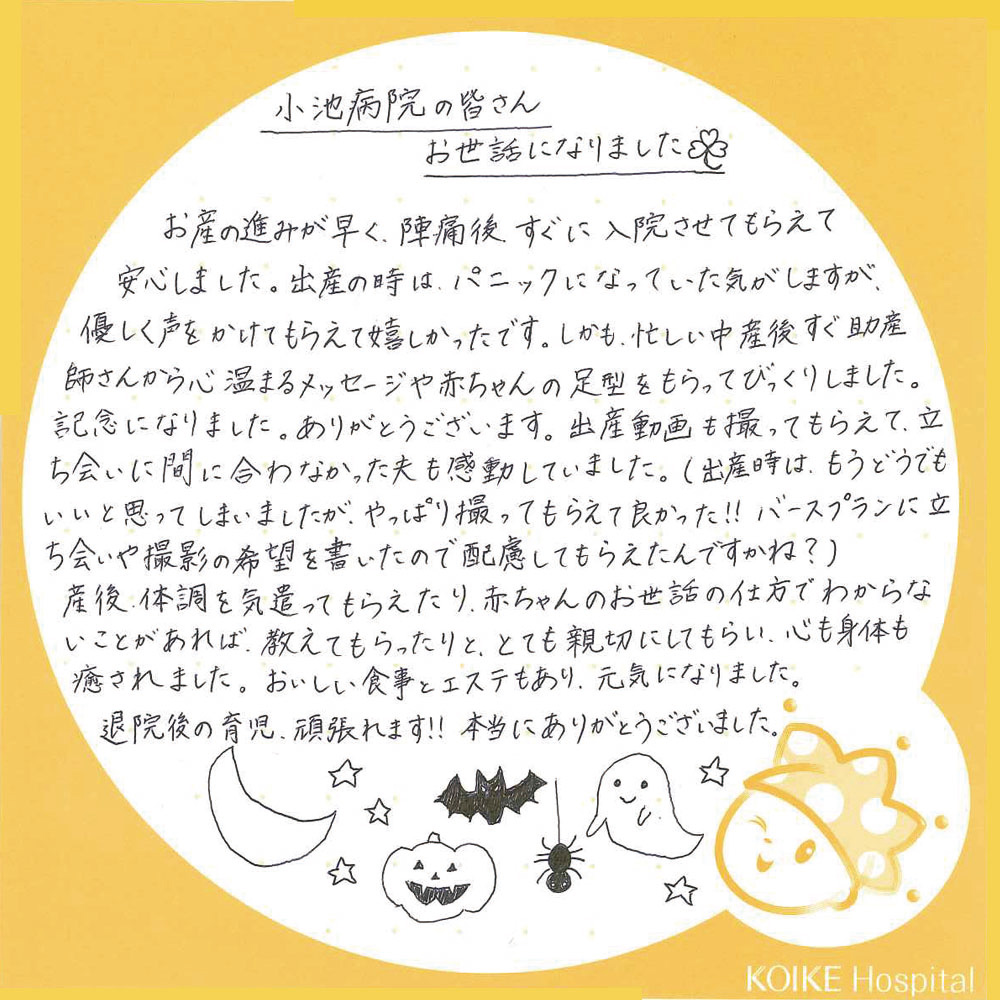 小池病院の皆さん
お世話になりました
お産の進みが早く、陣痛後、すぐに入院させてもらえて
安心しました。出産の時は、パニックになっていた気がしますが、
優しく声をかけてもらえて嬉しかったです。しかも、忙しい中産後すぐ助産
師さんから心温まるメッセージや赤ちゃんの足型をもらってびっくりしました。
記念になりました。ありがとうございます。出産動画も撮ってもらえて、立
ち会いに間に合わなかった夫も感動していました。(出産時は、もうどうでも
いいと思ってしまいましたが、やっぱり撮ってもらえて良かった!! バースプランに立
ち会いや撮影の希望を書いたので配慮してもらえたんですかね?)
産後、体調を気遣ってもらえたり、赤ちゃんのお世話の仕方でわからな
いことがあれば、教えてもらったりと、とても親切にしてもらい、心も身体も
癒されました。おいしい食事とエステもあり、元気になりました。
退院後の育児、頑張れます!! 本当にありがとうございました。
KOIKE Hospital